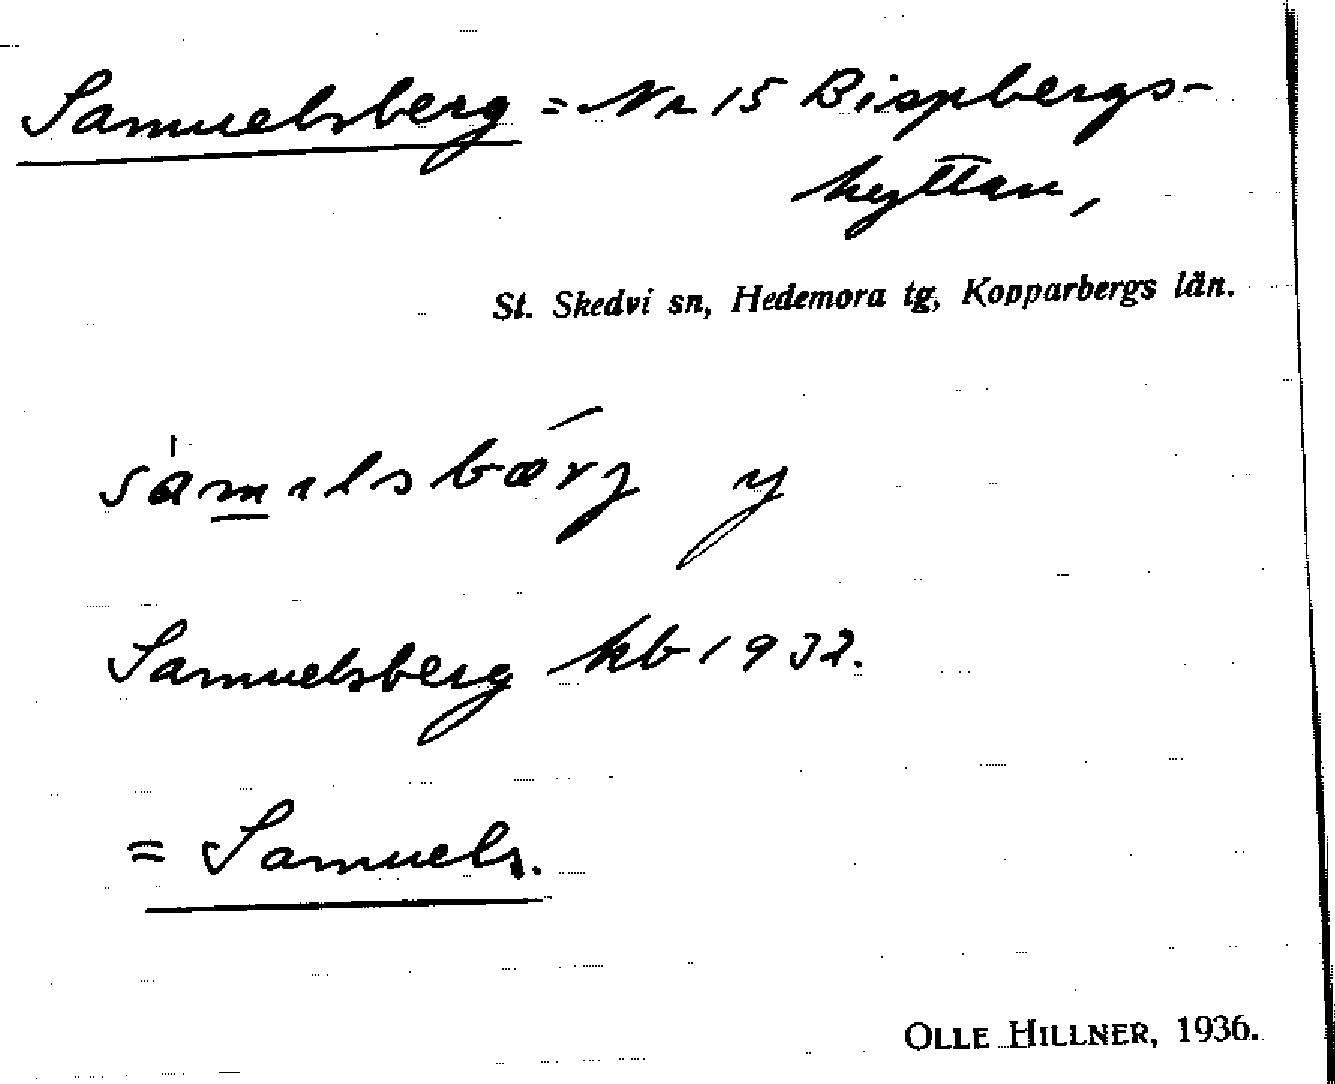 Samuelsberg = Nr 15 Bispbergs-
hyttan,
St. Skedvi sn, Hedemora tg, Kopparbergs län.
y
Samuelsberg kb 1932.
= Samuels.
OLLE HILLNER, 1936.